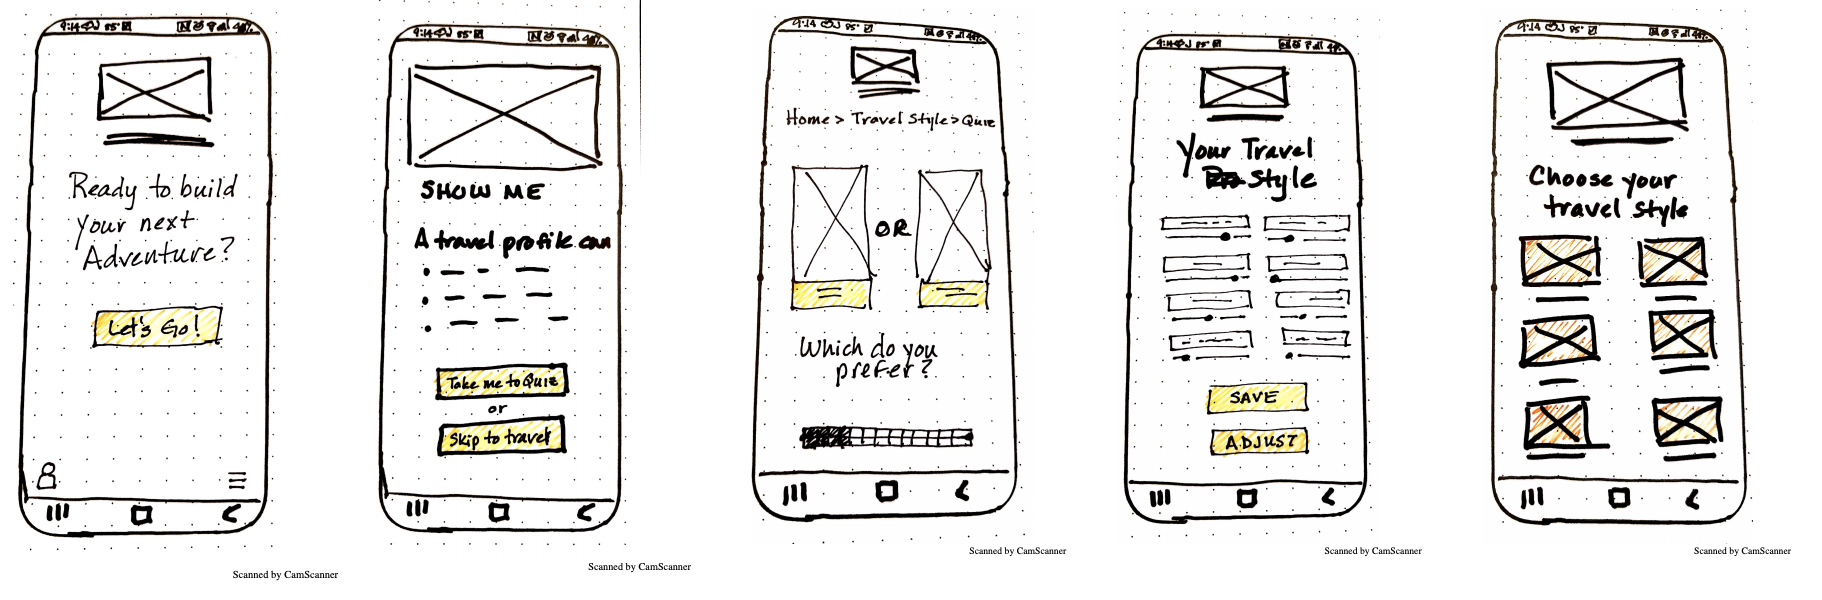 9:14 85°
46%
Ready to build
your next
Adventure?
Let's Go!
Scanned by CamScanner
9:14 85°
46%
SHOW ME
A travel profile can
Take me to Quiz
or
Skip to travel
Scanned by CamScanner
9:14 85°
Home > Travel Style > Quiz
OR
Which do you
prefer?
Scanned by CamScanner
9:14 85°
Your Travel
Style
SAVE
ADJUST
Scanned by CamScanner
9:14 85°
Choose your
travel style
Scanned by CamScanner